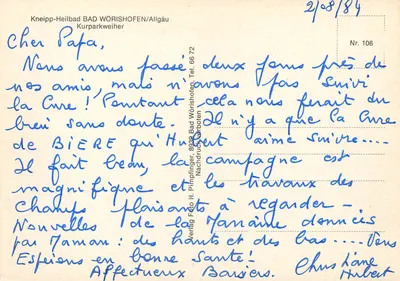 2/08/84
Kneipp-Heilbad BAD WÖRISHOFEN/Allgäu
Kurparkweiher
Nr. 106
Cher Papa,
Nous avons passé deux jours près de
nos amis, mais n'avons pas suivi
la Cure! Pourtant cela nous ferait du
bien sans doute. Il n'y a que la Cure
de BIERE qu'Hubert aime suivre....
Il fait beau, la campagne est
magnifique et les travaux des
Champs plaisants à regarder -
Nouvelles de la Marraine données
par Maman : des hauts et des bas .... Vous
Espérons en bonne Santé!
Affectueux Baisers.
Christiane
Hubert
Verlag Foto H. Pfropflinger, 8939 Bad Wörishofen, Tel. 66 72
Nachdruck verboten